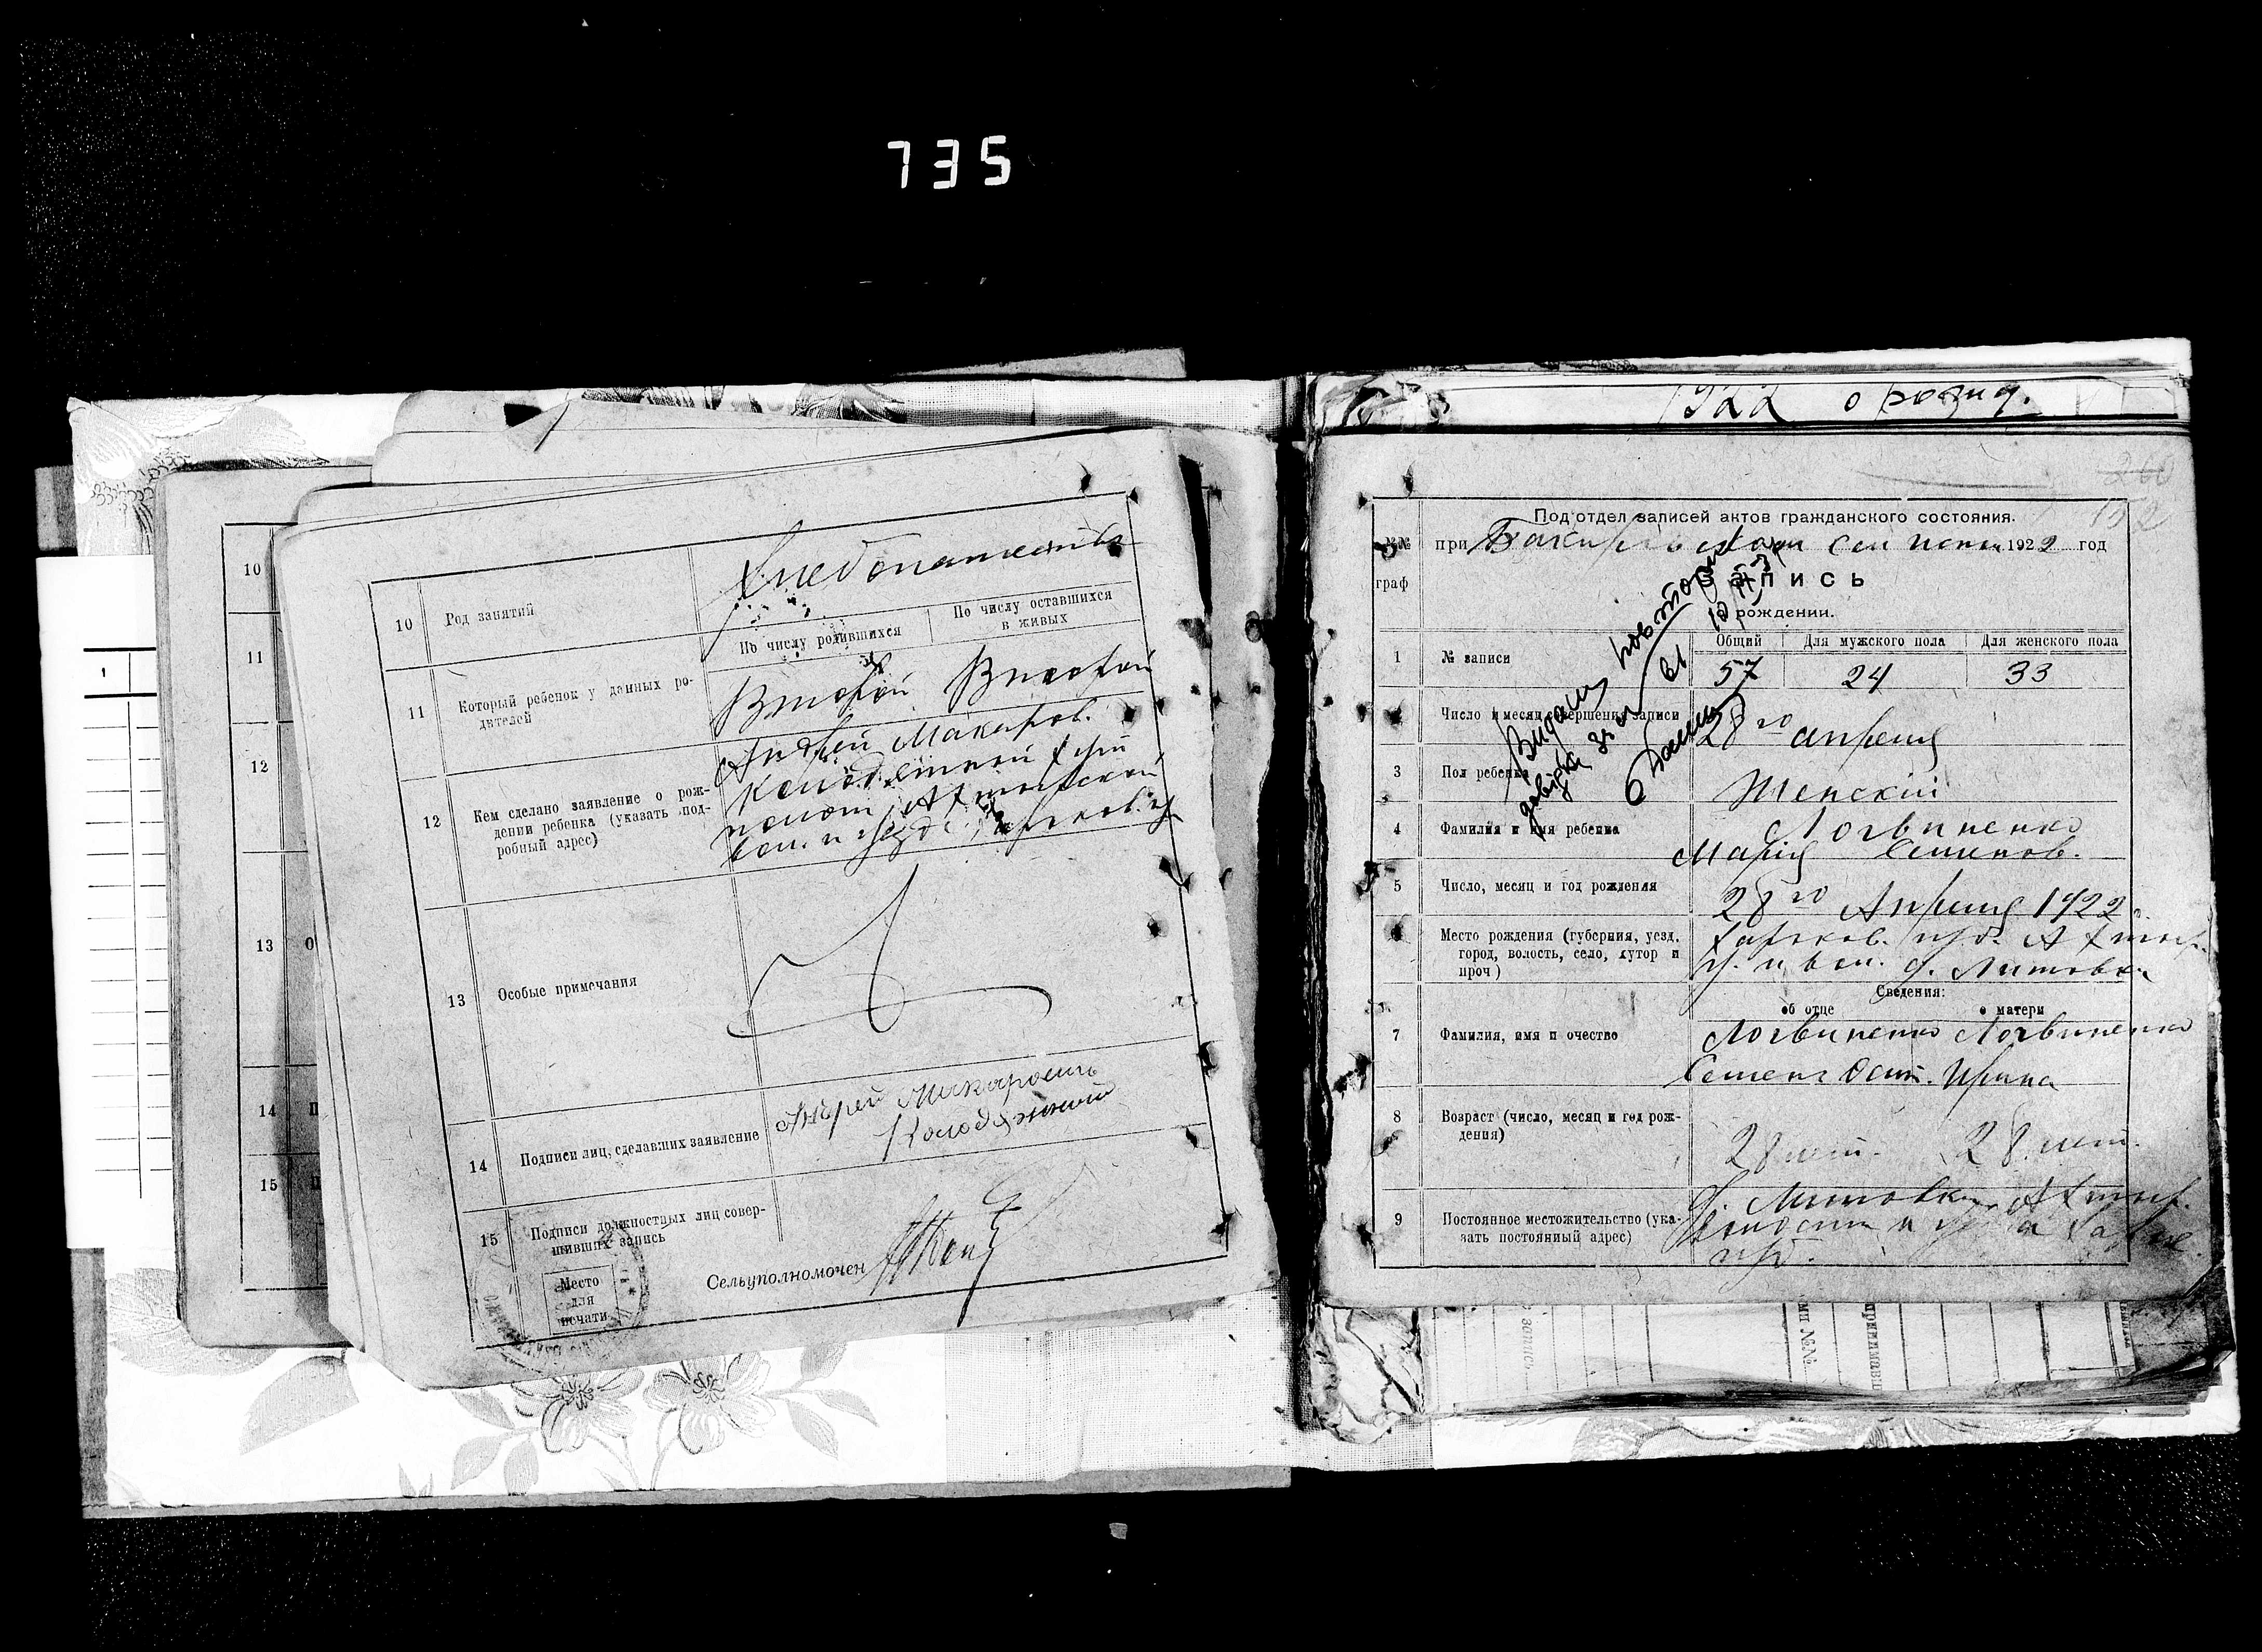 735
10 Род занятий
Хлебопашество
По числу родившихся
По числу оставшихся
в живых
11 Который ребенок у данных ро-
дителей
Второй Второй
12 Кем сделано заявление о рож-
дении ребенка (указать под-
робный адрес)
Андрей Макаров.
вол. и уезда Харьков. г.
13 Особые примечания
14 Подписи лиц, сделавших заявление
Андрей Макарович
15 Подписи должностных лиц совер-
шивших запись
Место
для
печати
Сельуполномочен
10
11
12
13 О
14 П
15
1
1922 о рожд.
260
Под'отдел записей актов гражданского состояния.
№№
граф
при 1922 год
ЗАПИСЬ
о рождении.
Видано повторн
довідка
Общий
Для мужского пола
Для женского пола
1 № записи
57 24 33
Число и месяц совершения записи
28го апреля
3 Пол ребенка
Женскій
4 Фамилия и имя ребенка
Логвиненко
Марія Семенов.
5 Число, месяц и год рождения
28го Апреля 1922 г.
Место рождения (губерния, уезд,
город, волость, село, хутор и
проч)
Харьков. губ. Ахтыр.
у. и вол. д. Литовка
Сведения:
об отце
о матери
7 Фамилия, имя п очество
Логвиненко Логвиненко
Семен Ирина
8 Возраст (число, месяц и год рож-
дения)
28 лет. 28 лет.
9 Постоянное местожительство (ука-
зать постоянный адрес)
д. Литовка Ахтыр.
волости и уезда Харьк.
губ.